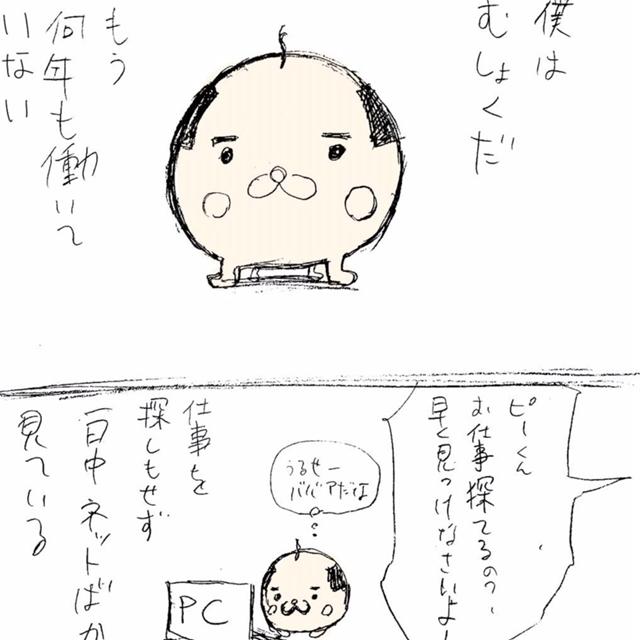 僕は
むしょくだ
もう
何年も働いて
いない
ピーくん
お仕事探てるの?
早く見つけなさいよー
うるせー
ババアだな
仕事を
探しもせず
一日中ネットばか
見ている
PC